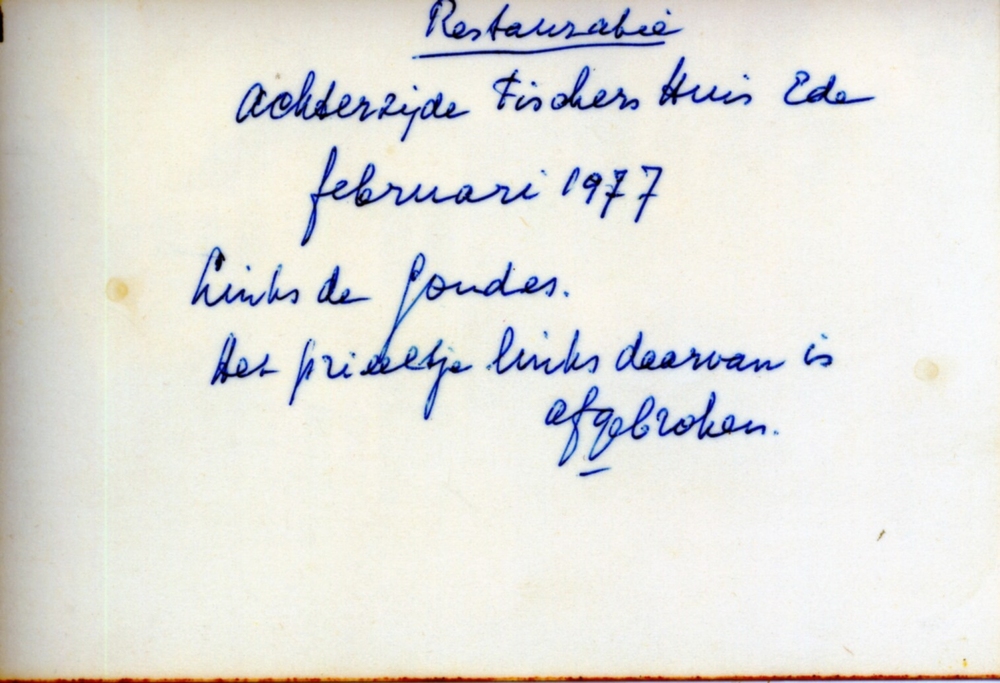 Restauratie
Achterzijde Fischers Huis Ede
februari 1977
Links de
Het prieeltje links daarvan is
afgebroken.